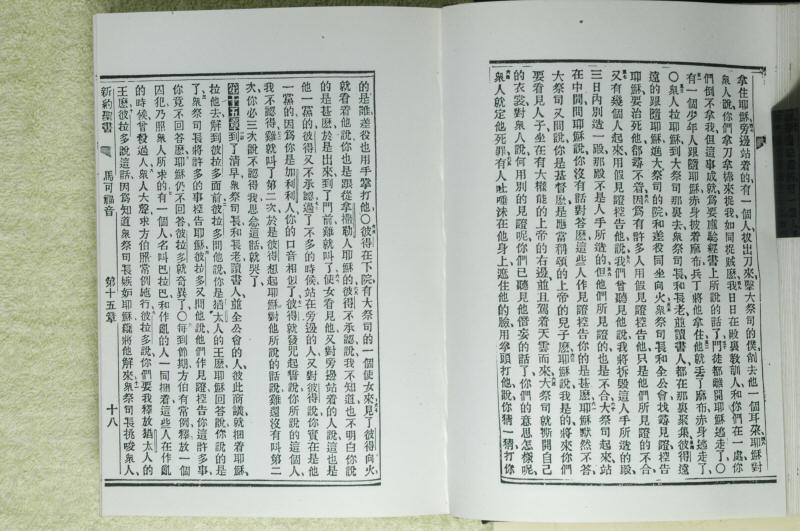 拿住耶穌旁邊站着的有一個人拔出刀來擊大祭司的僕削去他一個耳朶耶穌對
衆人說你們拿刀拿棒來捉我如同捉賊麽我日日在殿裏敎訓人和你們在一處你
們倒不拿我但這事成就爲要應驗經書上所說的話了門徒都離開耶穌逃走了〇
有一個少年人跟隨耶穌赤身披着麻布兵丁將他拿住他就丟了麻布赤身逃走了
〇衆人拉耶穌到大祭司那裏去衆祭司長和長老並讀書人都在那裏聚集彼得遠
遠的跟隨耶穌進大祭司的院和差役同坐向火衆祭司長和全公會找尋見證控告
耶穌要治死他都尋不着因爲有許多人用假見證控告他只是他們所見證的不合
又有幾個人起來用假見證控告他說我們曾聽見他說我將拆毀這人手所造的殿
三日內別造一殿那殿不是人手所造的但他們所見證的也是不合大祭司起來站
在中間問耶穌說你沒有話對答麽這些人作見證控告你的是甚麽耶穌默然不答
大祭司又問他說你是基督麽是應當稱頌的上帝的兒子麽耶穌說我是的將來你們
要看見人子坐在有大權能的上帝的右邊並且駕着天雲而來大祭司就撕開自己
的衣裳對衆人說何用別的見證呢你們已聽見他僭妄的話了你們的意思怎樣呢
衆人就定他死罪有人吐唾沫在他身上遮住他的臉用拳頭打他說你猜一猜打你
的是誰差役也用手掌打他〇彼得在下院有大祭司的一個使女來見了彼得向火
就看着他說你也是跟從拿撒勒人耶穌的彼得不承認說我不知道也不明白你說
的是甚麽於是出來到了門前雞就叫了使女看見他又對旁邊站着的人說這也是
他一黨的彼得又不承認過了不多的時候站在旁邊的人又對彼得說你實在是他
一黨的因爲你是加利利人你的口音相似了彼得就發咒起誓說你所說的這個人
我不認得雞就叫了第二次於是彼得想起耶穌對他所說的話說雞還沒有叫第二
次你必三次說不認得我思念這話就哭了
第十五章到了淸早衆祭司長和長老讀書人並全公會的人彼此商議就捆着耶穌
拉他去解到彼拉多面前彼拉多問他說你是猶太人的王麽耶穌回答說你說的是
了衆祭司長將許多的事控告耶穌彼拉多又問他說他們作見證控告你這許多事
你竟不回答麽耶穌仍不回答彼拉多就奇異了〇每到節期方伯有常例釋放一個
囚犯乃照衆人所求的有一個人名叫巴拉巴和作亂的人一同捆着這些人在作亂
的時候曾殺過人衆人大聲求方伯照常例施行彼拉多說你們要我釋放猶太人的
王麽彼拉多說這話因爲知道衆祭司長嫉妬耶穌纔將他解來衆祭司長挑唆衆人
新約聖書 馬可福音 第十五章 十八